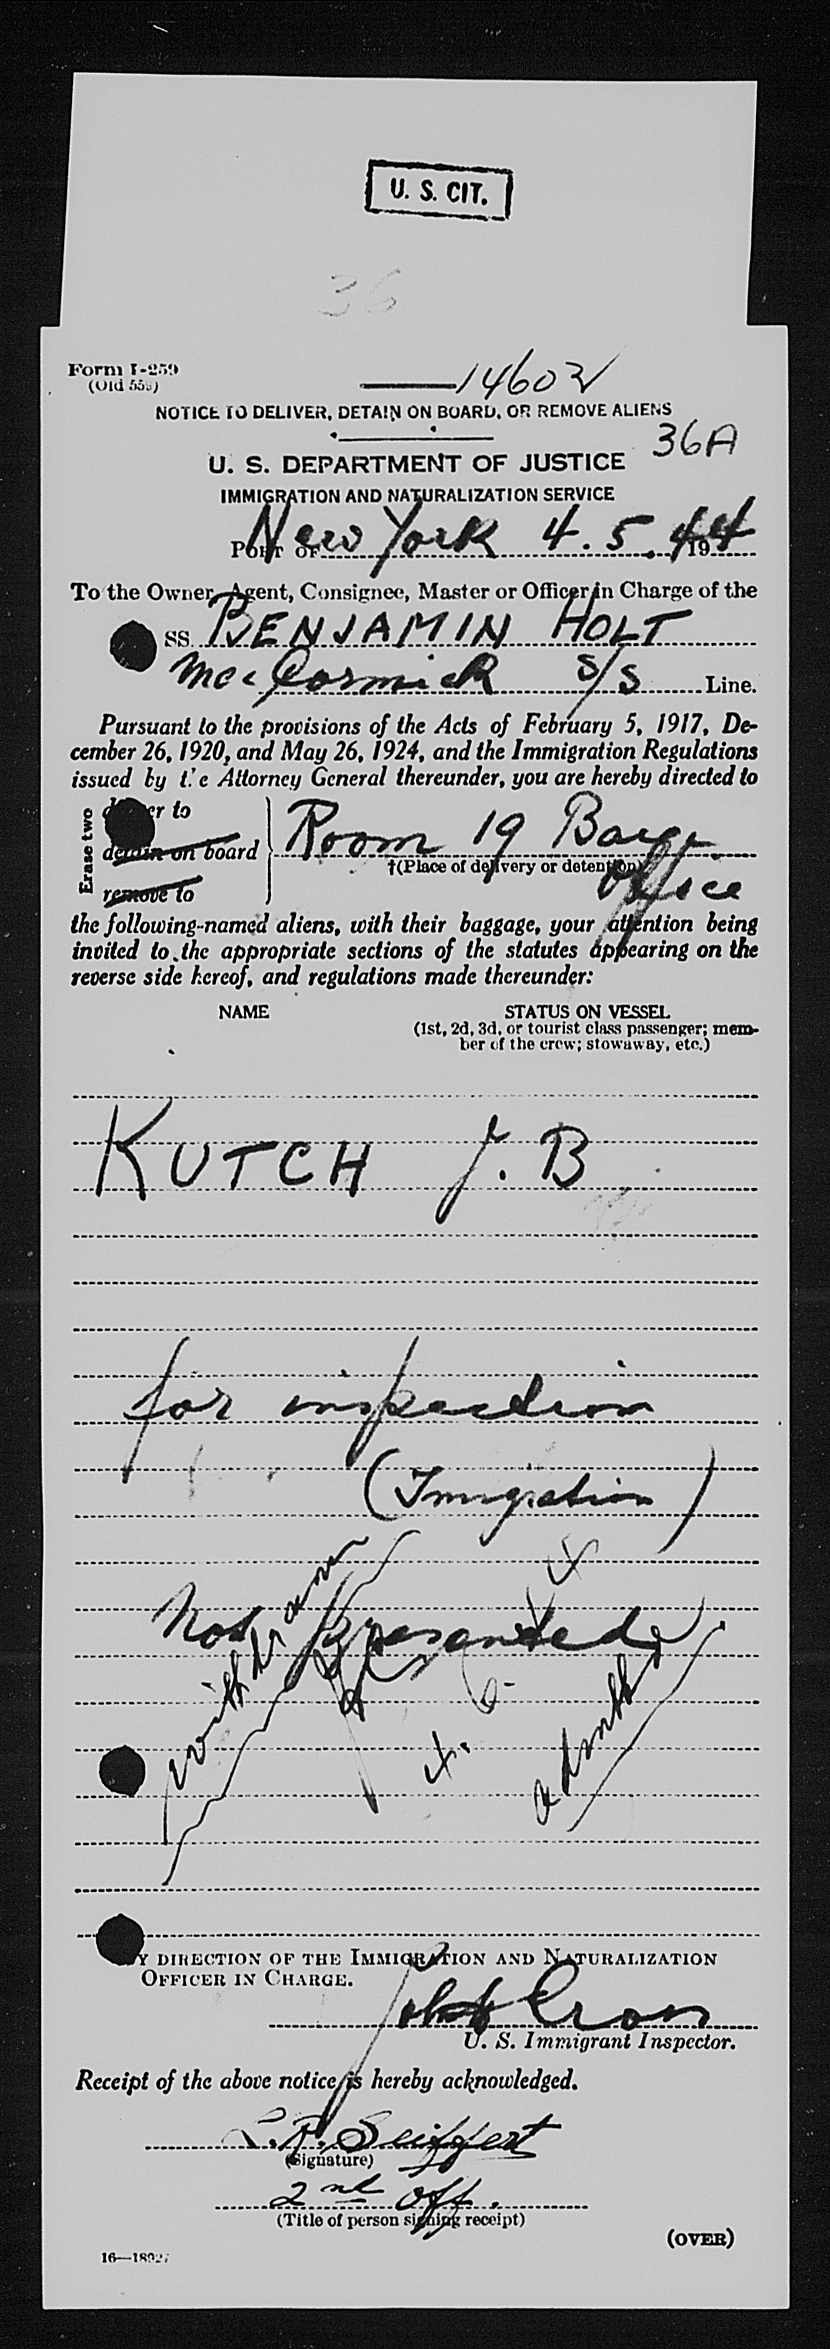 U. S. CIT.
36
Form I-259
(Old 555)
14602
NOTICE TO DELIVER, DETAIN ON BOARD, OR REMOVE ALIENS
36A
U. S. DEPARTMENT OF JUSTICE
IMMIGRATION AND NATURALIZATION SERVICE
PORT OF New York 4.5.44 19
To the Owner, Agent, Consignee, Master or Officer in Charge of the
SS. BENJAMIN HOLT
McCormick S/S Line.
Pursuant to the provisions of the Acts of February 5, 1917, De-
cember 26, 1920, and May 26, 1924, and the Immigration Regulations
issued by the Attorney General thereunder, you are hereby directed to
Erase two
deliver to
detain on board
remove to
Room 19 Barge
†(Place of delivery or detention)
Office
the following-named aliens, with their baggage, your attention being
invited to the appropriate sections of the statutes appearing on the
reverse side hereof, and regulations made thereunder:
NAME STATUS ON VESSEL
(1st, 2d, 3d, or tourist class passenger; mem-
ber of the crew; stowaway, etc.)
KUTCH J. B
for inspection
(Imigration)
Not Presented
withdrawn
4. 6. 44
admitted
BY DIRECTION OF THE IMMIGRATION AND NATURALIZATION
OFFICER IN CHARGE.
U. S. Immigrant Inspector.
Receipt of the above notice is hereby acknowledged.
L. R. Seiffert
(Signature)
2nd Off.
(Title of person signing receipt)
(OVER)
16—18927